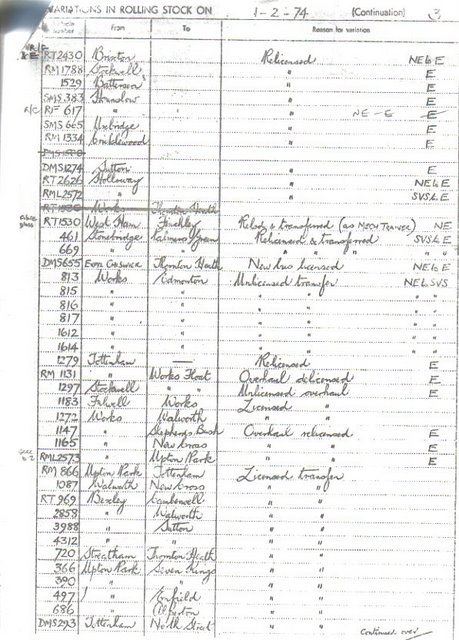 VARIATIONS IN ROLLING STOCK ON 1-2-74 (Continuation) 3
number From To Reason for variation
RT2430 Brixton Relicensed NE to E
RM1788 Stockwell " E
1529 Battersea " E
SMS 383 Hounslow " E
R/C RF 617 " " " NE - E E
SMS 665 Uxbridge " E
RM 1334 Cricklewood "
DMS1274 Sutton " E
RT 2626 Holloway " NE to E
RML2572 " " SVS to E
Works Thornton Heath
RT1530 West Ham Finchley Relic & transferred (as MECH TRAINER) NE
461 Stonebridge Palmers Green Relicensed & transferred SVS to E
669 " " " " " " "
DMS655 EX Thornton Heath New bus licensed NE to E
813 Works Edmonton Unlicensed transfer NE to SVS
815 " " " " " "
816 " " " " " "
817 " " " " " "
1612 " " " " " "
1614 " " " " " "
1279 Tottenham — Relicensed E
RM 1131 " Works Float Overhaul delicensed E
1297 Stockwell " " Unlicensed overhaul E
1183 Fulwell Works Licensed "
1272 Works Walworth " "
1147 " Shepherds Bush Overhaul relicensed E
1165 " New Cross " " E
RML2573 " Upton Park " " E
RM 866 Upton Park Tottenham Licensed transfer
1087 Walworth New Cross " "
RT 969 Bexley Camberwell " "
2858 " Walworth " "
3988 " Sutton " "
4312 " " " "
720 Streatham Thornton Heath " "
366 Upton Park Seven Kings " "
390 " " " "
497 " Enfield " "
686 " Alperton " "
DMS293 Tottenham North Street " "
Continued over